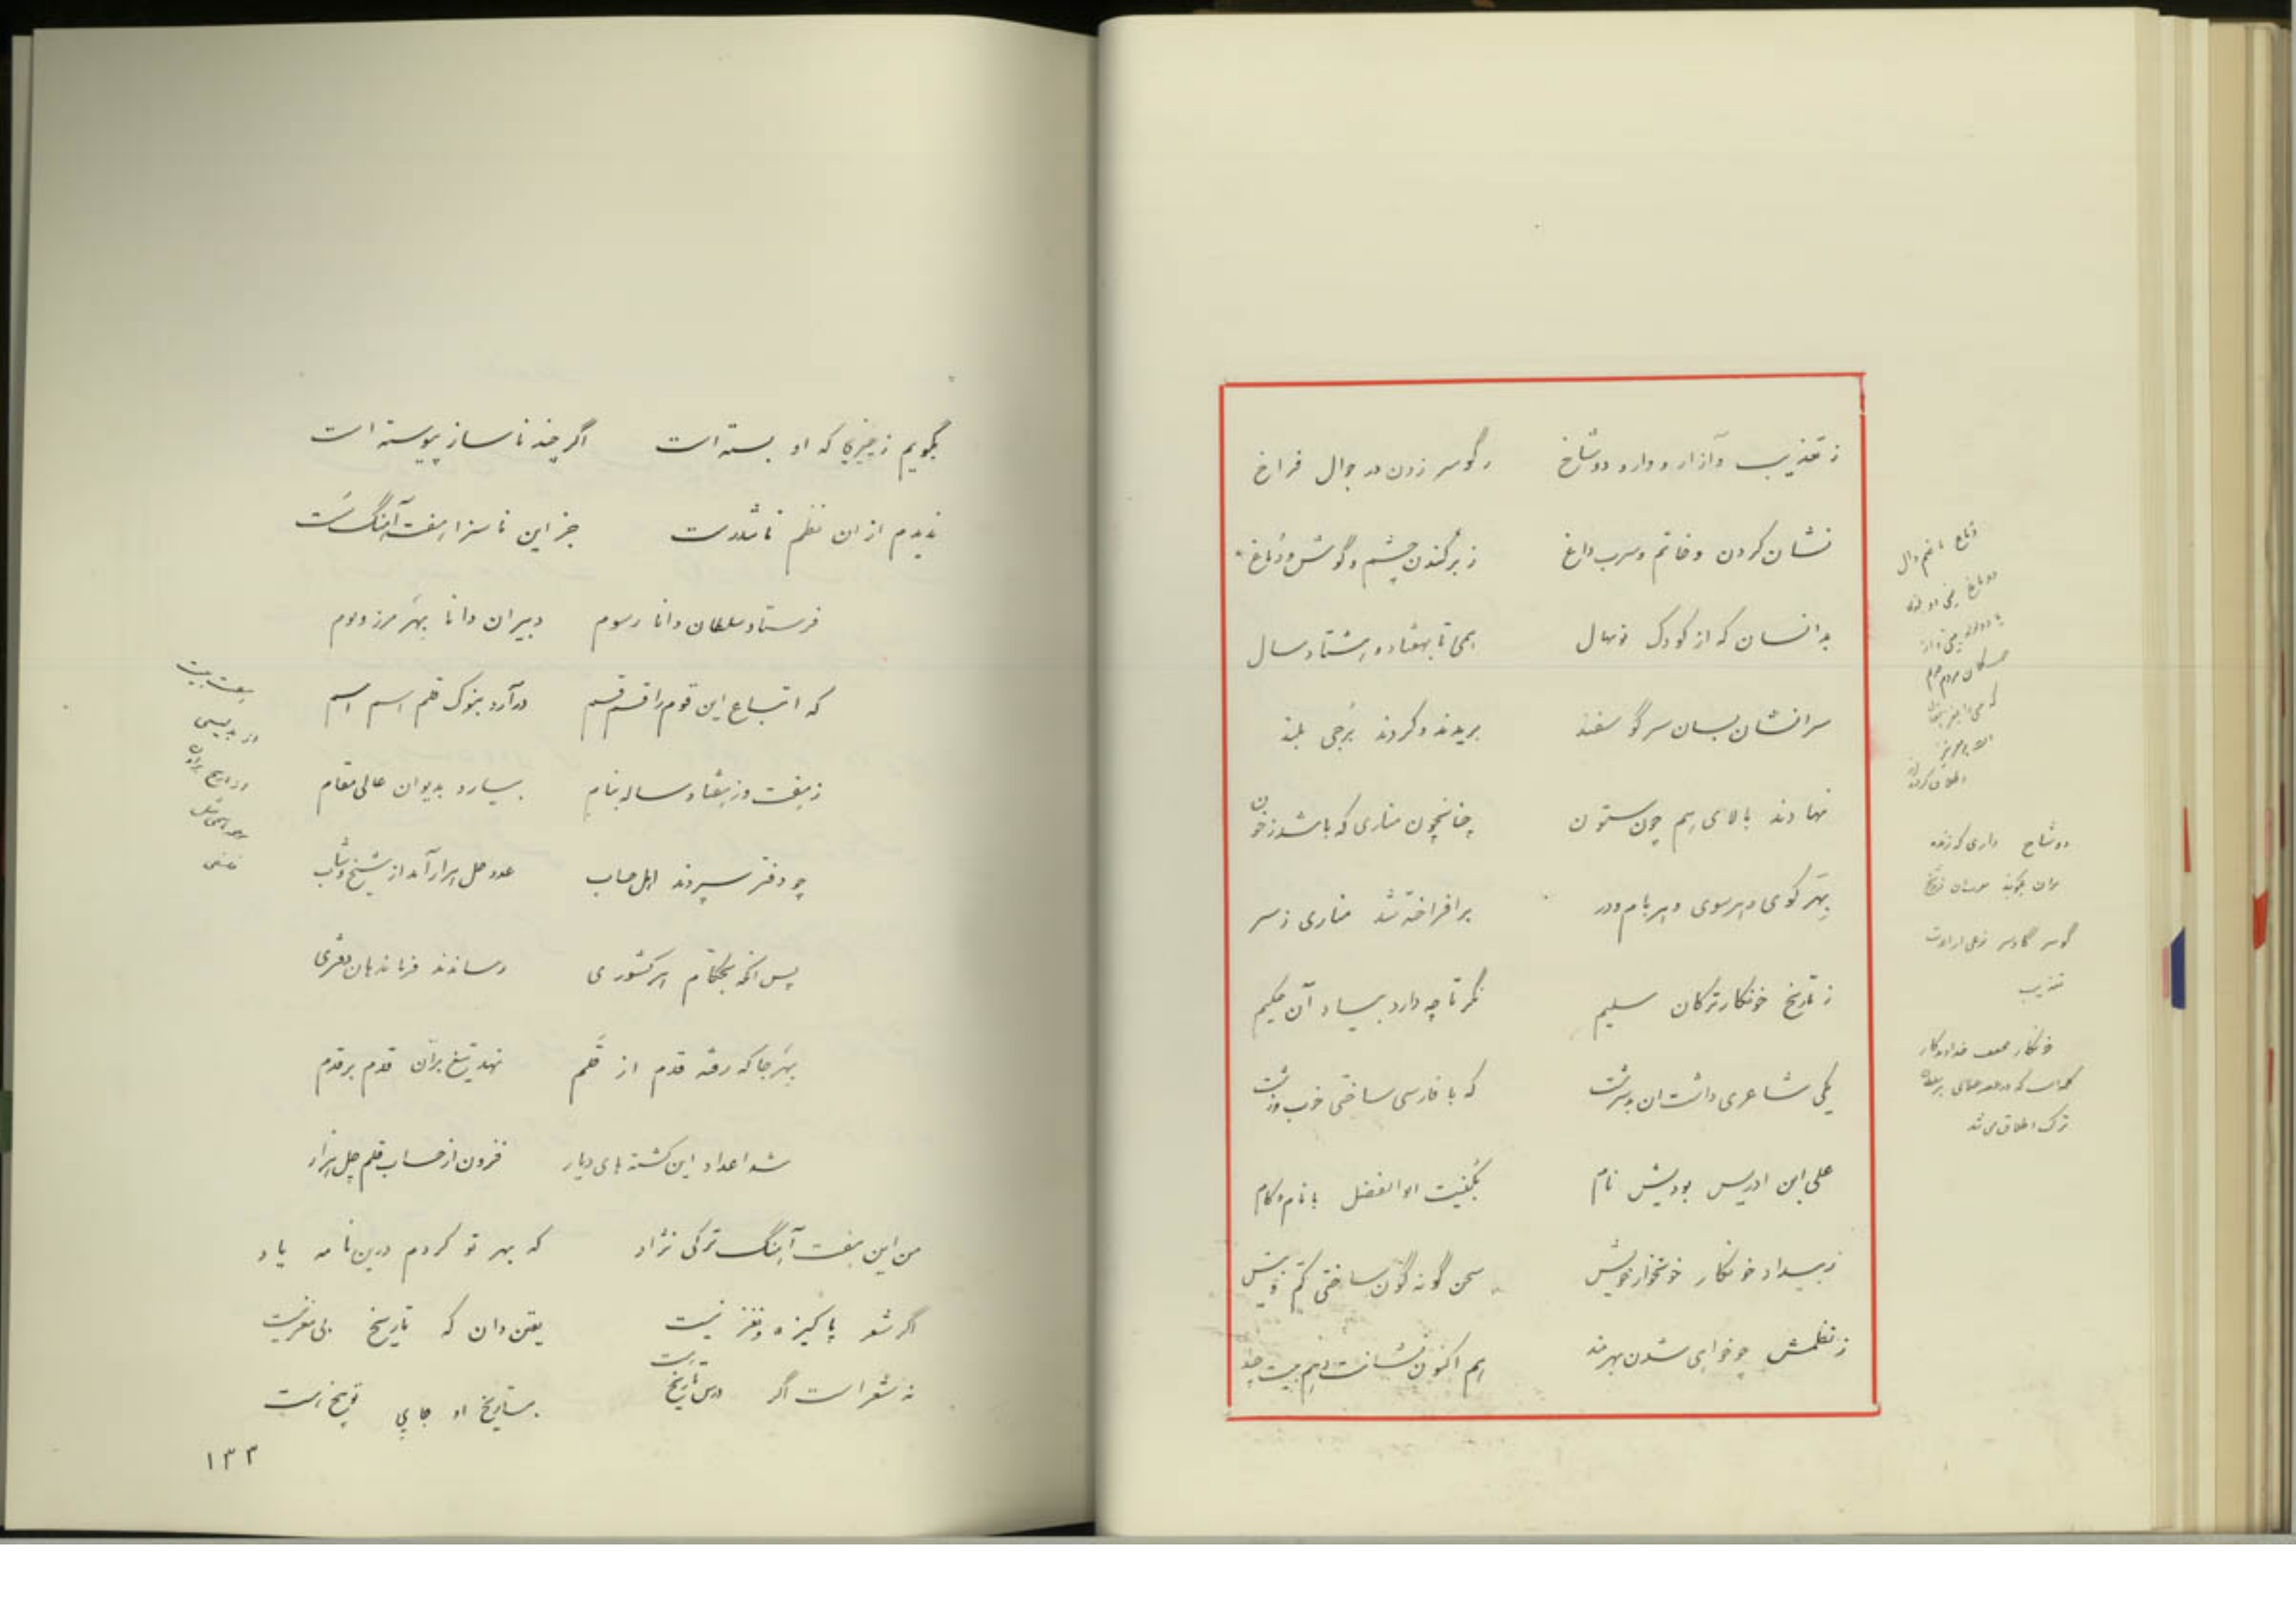 ز تعذیب و آزار و دار و دوشاخ   ز گوسر زدن در جوال فراخ
نشان کردن و خاتم و سرب داغ   ز برکندن چشم و گوش و دماغ
بدانسان که از کودک نونهال   همی تا بهفتاد و هشتاد سال
سرانشان بسان سر گوسفند   بریدند و کردند برجی بلند
نهادند بالای هم چون ستون   چنانچون مناری که باشد ز خون
بهر کوی و هر سوی و هر بام و در   برافراخته شد مناری ز سر
ز تاریخ خونکار ترکان سلیم   نگر تا چه دارد بیاد آن حکیم
یکی شاعری داشت آن بدسرشت   که با فارسی ساختی خوب و زشت
علی ابن ادریس بودیش نام   بکنیت ابوالفضل با نام و کام
ز بیداد خونکار خونخوار خویش   سخن گونه گون ساختی کم و بیش
ز نظمش چو خواهی شدن بهره‌مند   هم اکنون نشانت دهم بیت چند
دماغ با ضم دال
دوشاخ داری که زنده
گوسر گاوسر نوعی از آلات
تعذیب
خونکار مخفف خداوندکار
ترک اطلاق می شد
بگویم ز چیزیکه او بسته است   اگر چند ناساز پیوسته است
ندیدم از ان نظم نا تندرست   جز این ناسزا هفت آهنگ سست
فرستاد سلطان دانا رسوم   دبیران دانا بهر مرز و بوم
که اتباع این قوم را قسم قسم   درآرد بنوک قلم اسم اسم
ز هفت و ز هفتاد ساله بنام   بیارد بدیوان عالی مقام
چو دفتر سپردند اهل حساب   عدد چل هزار آمد از شیخ و شاب
پس آنکه بحکام هر کشوری   رساندند فرماندهان دفتری
بهر جا که رفته قدم از قلم   نهد تیغ بران قدم بر قدم
شد اعداد این کشته های دیار   فزون از حساب قلم چل هزار
من این هفت آهنگ ترکی نژاد   که بهر تو کردم درین نامه یاد
اگر شعر پاکیزه و نغز نیست   یقین دان که تاریخ بی مغز نیست
نه شعر است اگر درس تاریخ است   بتاریخ او جای توبیخ نیست
هفت بیت
۱۳۳